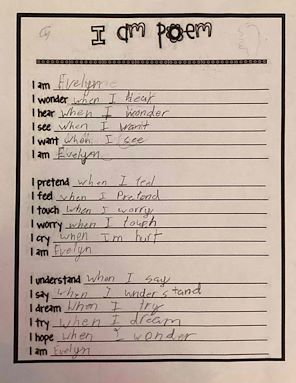 I am poem
I am Evelyn
I wonder when I hear
I hear when I wonder
I see when I want
I want when I see
I am Evelyn
I pretend when I feel
I feel when I Pretend
I touch when I worry
I worry when I touch
I cry when Im hurt
I am Evelyn
I understand when I say
I say when I understand
I dream when I try
I try when I dream
I hope when I wonder
I am Evelyn